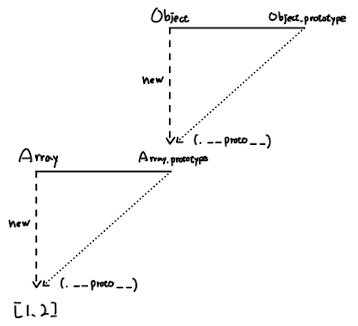 Object Object.prototype
new
(.__proto__)
Array Array.prototype
new
(.__proto__)
[1,2]